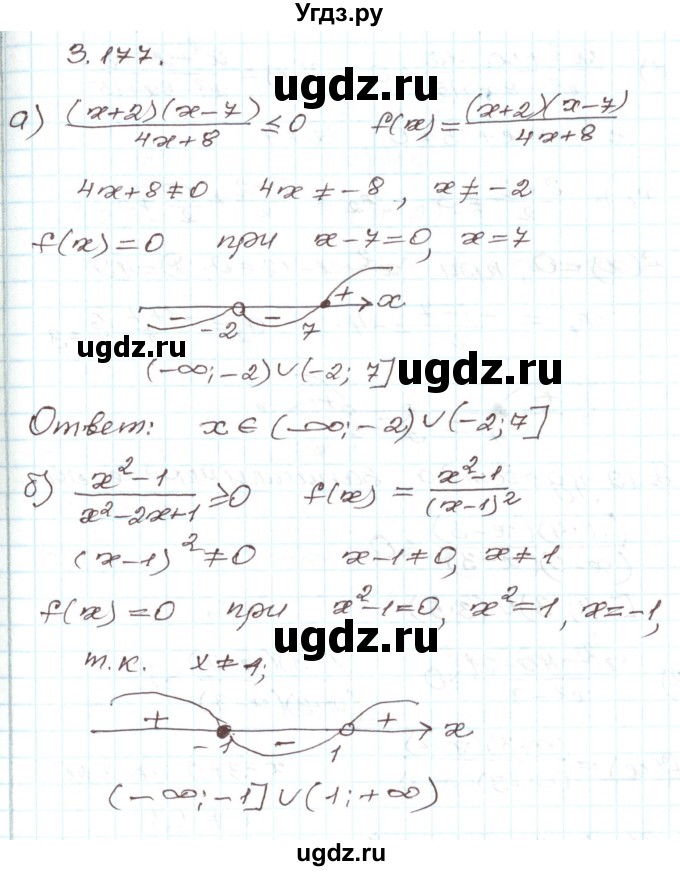 Угдз.ру
3.177.
ugdz.ru
а) (x+2)(x-7)/4x+8 ≤ 0 f(x) = (x+2)(x-7)/4x+8
4x+8≠0 4x ≠ -8, x ≠ -2
f(x)=0 при x-7=0, x=7
- -2 - 7 + x
ugdz.ru
(-∞; -2) ∪ (-2; 7]
ugdz.ru
Ответ: x ∈ (-∞; -2) ∪ (-2; 7]
б) x²-1/x²-2x+1 ≥ 0 f(x) = x²-1/(x-1)²
(x-1)² ≠ 0 x-1≠0, x≠1
f(x)=0 при x²-1=0, x²=1, x=-1,
ugdz.ru
т.к. x≠1;
+ -1 - 1 + x
(-∞; -1] ∪ (1; +∞)
ugdz.ru
ugdz.ru